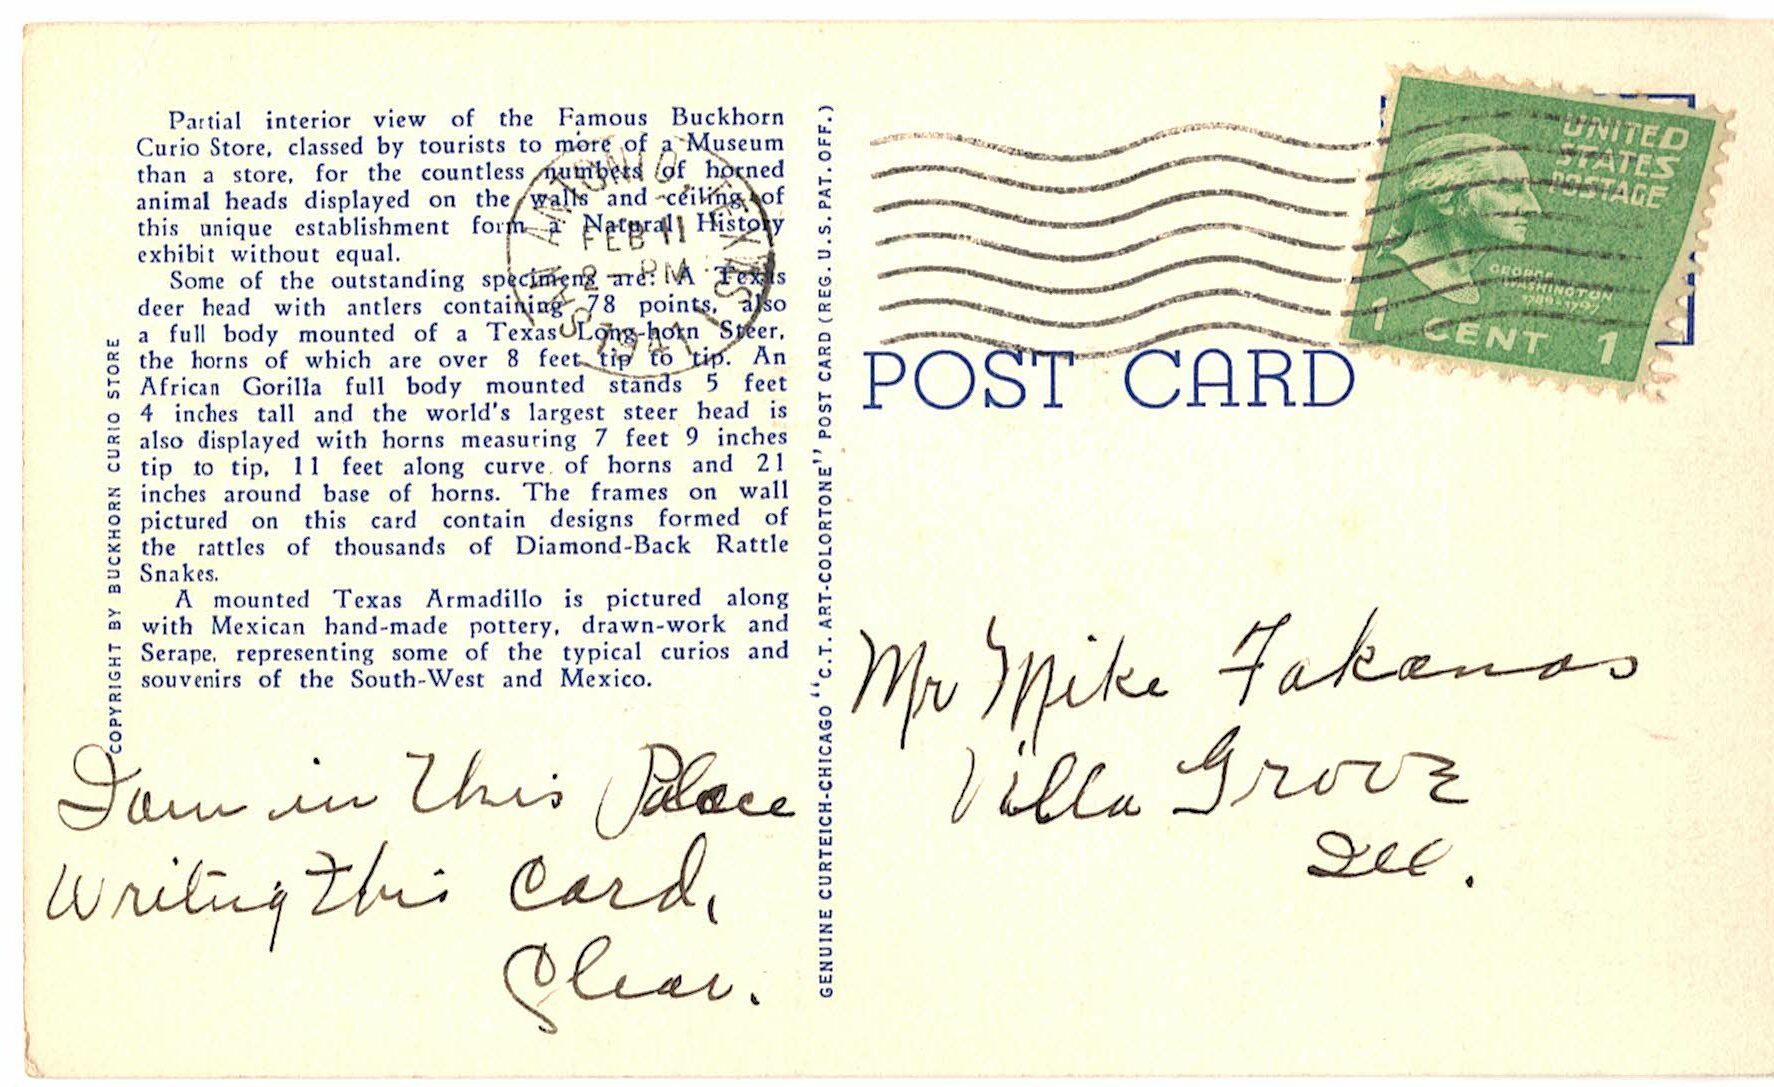 Partial interior view of the Famous Buckhorn
Curio Store, classed by tourists to more of a Museum
than a store, for the countless numbers of horned
animal heads displayed on the walls and ceiling of
this unique establishment form a Natural History
exhibit without equal.
Some of the outstanding specimens are: A Texas
deer head with antlers containing 78 points, also
a full body mounted of a Texas Long-horn Steer,
the horns of which are over 8 feet tip to tip. An
African Gorilla full body mounted stands 5 feet
4 inches tall and the world's largest steer head is
also displayed with horns measuring 7 feet 9 inches
tip to tip, 11 feet along curve of horns and 21
inches around base of horns. The frames on wall
pictured on this card contain designs formed of
the rattles of thousands of Diamond-Back Rattle
Snakes.
A mounted Texas Armadillo is pictured along
with Mexican hand-made pottery, drawn-work and
Serape, representing some of the typical curios and
souvenirs of the South-West and Mexico.
COPYRIGHT BY BUCKHORN CURIO STORE
SAN ANTONIO, TEXAS
FEB 11
2 - PM
1941
in this Palace
Writing this Card,
GENUINE CURTEICH-CHICAGO "C.T. ART-COLORTONE" POST CARD (REG. U.S. PAT. OFF.)
UNITED
STATES
POSTAGE
GEORGE
WASHINGTON
1789-1797
1 CENT 1
POST CARD
Mr Mike Fakanas
Villa Grove
Ill.